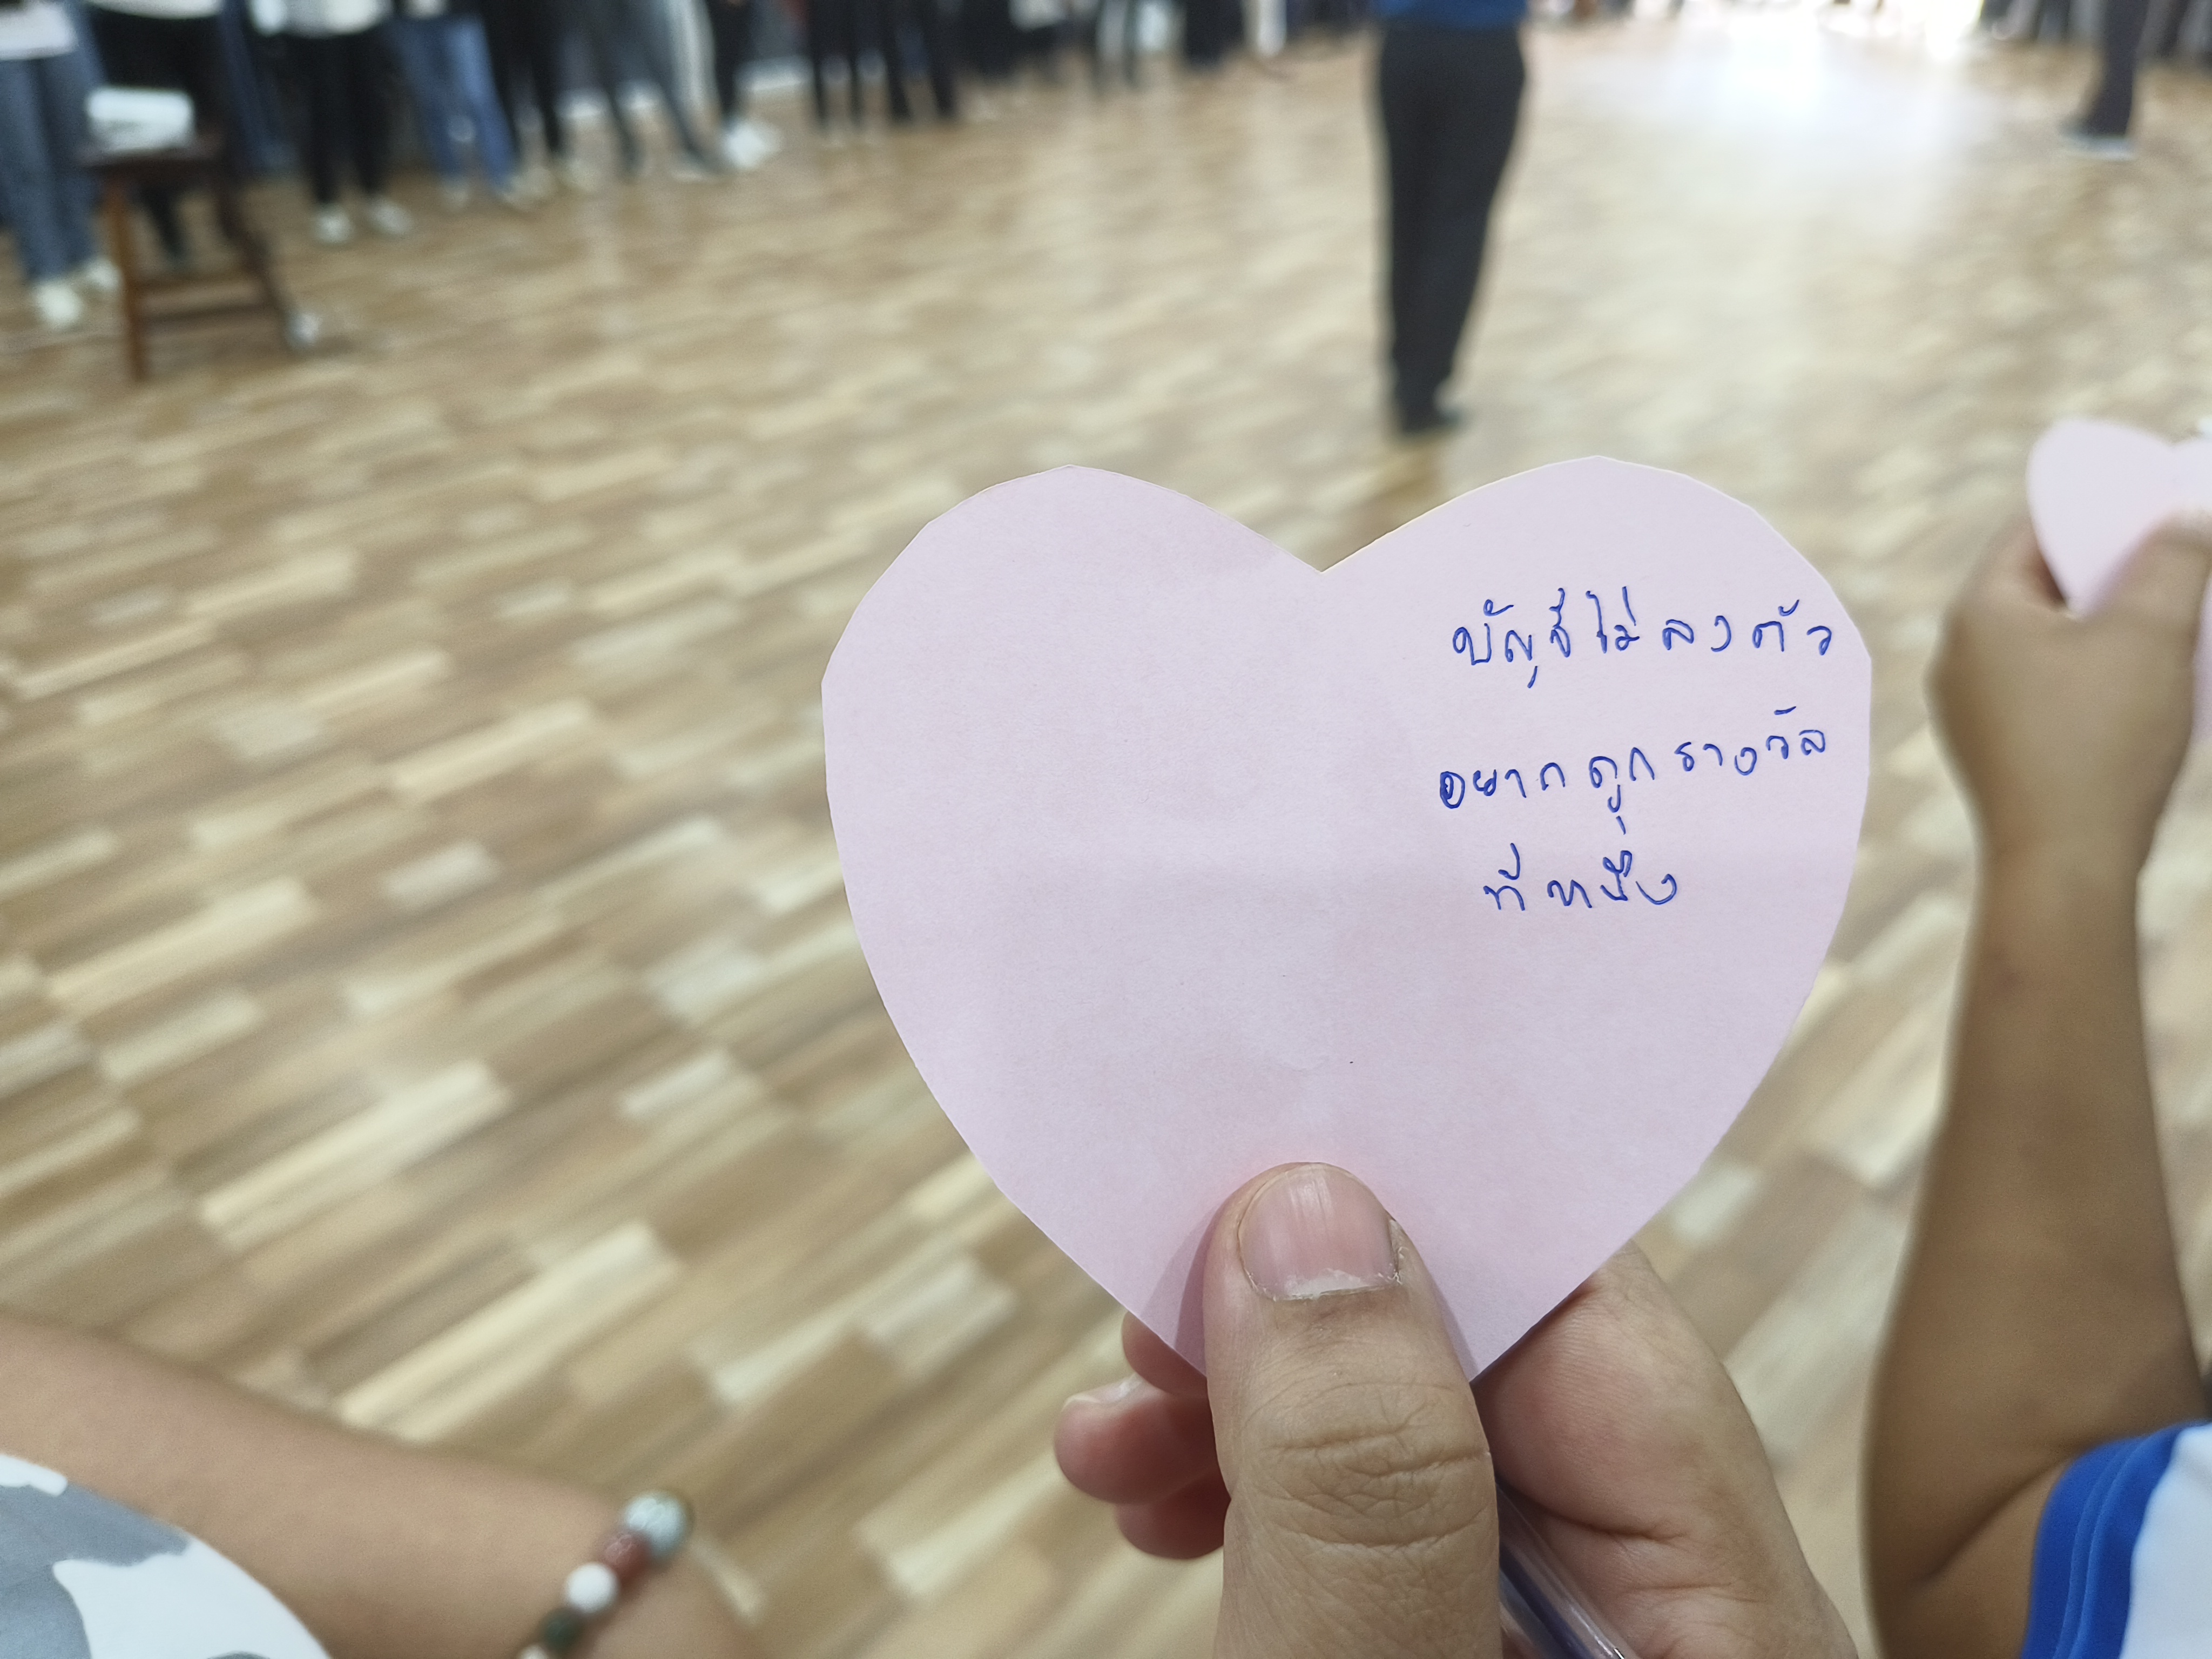 บัญชีไม่ลงตัว
อยากถูกรางวัล
ที่หนึ่ง